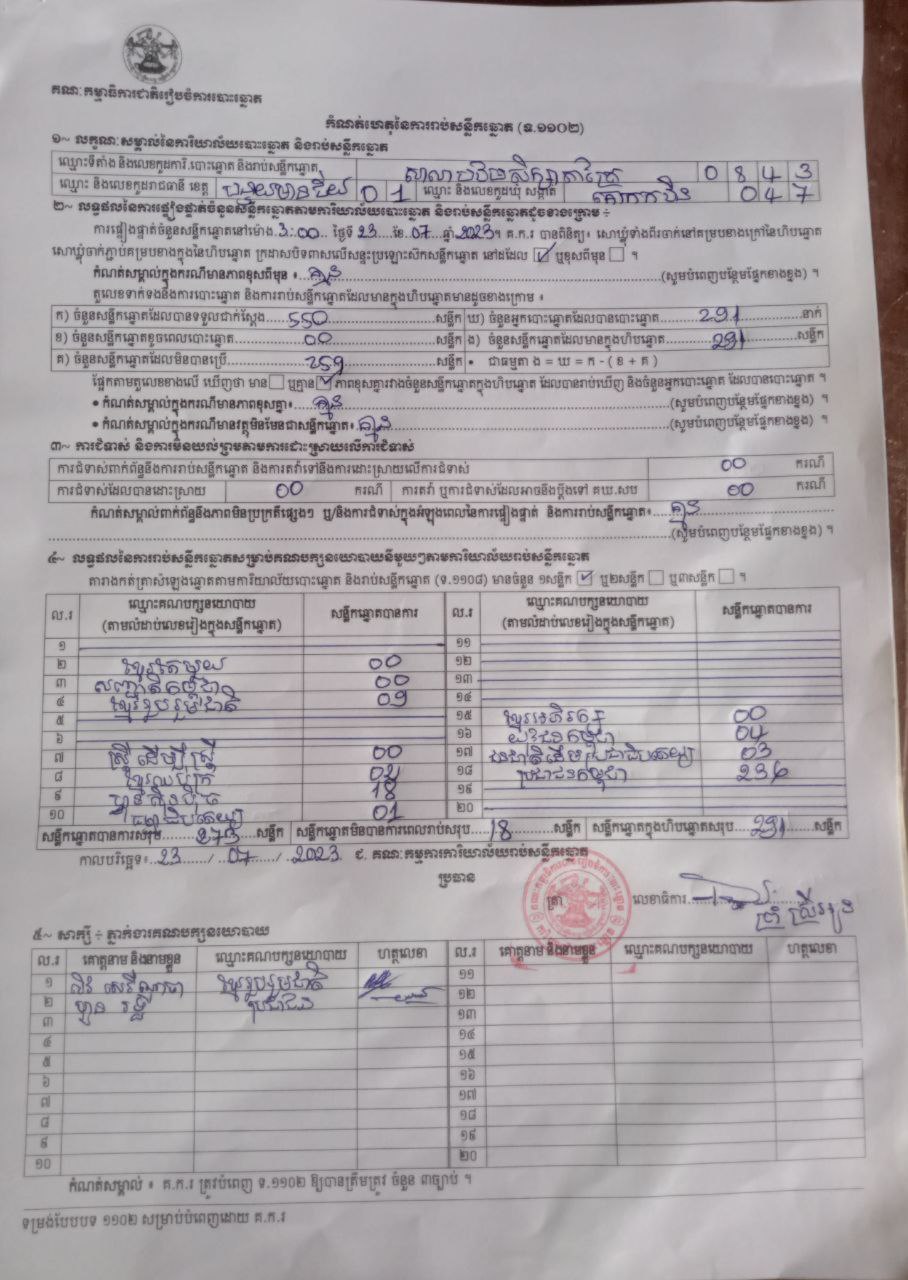 គណៈកម្មាធិការជាតិរៀបចំការបោះឆ្នោត
កំណត់ហេតុនៃការរាប់សន្លឹកឆ្នោត (ទ.១១០២)
១~ លក្ខណៈសម្គាល់នៃការិយាល័យបោះឆ្នោត និងរាប់សន្លឹកឆ្នោត
ឈ្មោះទីតាំង និងលេខកូដការិ.បោះឆ្នោត និងរាប់សន្លឹកឆ្នោត សាលាបឋមសិក្សា 0 8 4 3
ឈ្មោះ និងលេខកូដរាជធានី ខេត្ត បន្ទាយមានជ័យ 0 1 ឈ្មោះ និងលេខកូដឃុំ សង្កាត់ 0 4 7
២~ លទ្ធផលនៃការផ្ទៀងផ្ទាត់ចំនួនសន្លឹកឆ្នោតតាមការិយាល័យបោះឆ្នោត និងរាប់សន្លឹកឆ្នោតដូចខាងក្រោម ÷
ការផ្ទៀងផ្ទាត់ចំនួនសន្លឹកឆ្នោតនៅម៉ោង.3:00... ថ្ងៃទី 23....ខែ.07...ឆ្នាំ 2023។ គ.ក.រ បានពិនិត្យ៖ សោឃ្មុំទាំងពីរចាក់នៅគម្របខាងក្រៅនៃហិបឆ្នោត
សោឃ្មុំចាក់ភ្ជាប់គម្របខាងក្នុងនៃហិបឆ្នោត ក្រដាសបិទពាសលើសន្ទះប្រឡោះសិកសន្លឹកឆ្នោត នៅដដែល ☑ ឬខុសពីមុន ☐ ។
កំណត់សម្គាល់ក្នុងករណីមានភាពខុសពីមុន ៖ គ្មាន (សូមបំពេញបន្ថែមផ្នែកខាងខ្នង) ។
តួលេខទាក់ទងនឹងការបោះឆ្នោត និងការរាប់សន្លឹកឆ្នោតដែលមានក្នុងហិបឆ្នោតមានដូចខាងក្រោម ៖
ក) ចំនួនសន្លឹកឆ្នោតដែលបានទទួលជាក់ស្តែង 550 សន្លឹក ឃ) ចំនួនអ្នកបោះឆ្នោតដែលបានបោះឆ្នោត 291 នាក់
ខ) ចំនួនសន្លឹកឆ្នោតខូចពេលបោះឆ្នោត 00 សន្លឹក ង) ចំនួនសន្លឹកឆ្នោតដែលមានក្នុងហិបឆ្នោត 291 សន្លឹក
គ) ចំនួនសន្លឹកឆ្នោតដែលមិនបានប្រើ 259 សន្លឹក • ជាធម្មតា ង = ឃ = ក - ( ខ + គ )
ផ្អែកតាមតួលេខខាងលើ ឃើញថា មាន ☐ ឬគ្មាន ☑ ភាពខុសគ្នារវាងចំនួនសន្លឹកឆ្នោតក្នុងហិបឆ្នោត ដែលបានរាប់ឃើញ និងចំនួនអ្នកបោះឆ្នោត ដែលបានបោះឆ្នោត ។
• កំណត់សម្គាល់ក្នុងករណីមានភាពខុសគ្នា៖ គ្មាន (សូមបំពេញបន្ថែមផ្នែកខាងខ្នង) ។
• កំណត់សម្គាល់ក្នុងករណីមានវត្ថុមិនមែនជាសន្លឹកឆ្នោត៖ គ្មាន (សូមបំពេញបន្ថែមផ្នែកខាងខ្នង) ។
៣~ ការជំទាស់ និងការមិនយល់ព្រមតាមការដោះស្រាយលើការជំទាស់
ការជំទាស់ពាក់ព័ន្ធនឹងការរាប់សន្លឹកឆ្នោត និងការតវ៉ាទៅនឹងការដោះស្រាយលើការជំទាស់ 00 ករណី
ការជំទាស់ដែលបានដោះស្រាយ 00 ករណី ការតវ៉ា ឬការជំទាស់ដែលអាចនឹងប្តឹងទៅ គឃ.សប 00 ករណី
កំណត់សម្គាល់ពាក់ព័ន្ធនឹងភាពមិនប្រក្រតីផ្សេងៗ ឬ/និងការជំទាស់ក្នុងអំឡុងពេលនៃការផ្ទៀងផ្ទាត់ និងការរាប់សន្លឹកឆ្នោត៖ គ្មាន
(សូមបំពេញបន្ថែមផ្នែកខាងខ្នង) ។
៤~ លទ្ធផលនៃការរាប់សន្លឹកឆ្នោតសម្រាប់គណបក្សនយោបាយនីមួយៗតាមការិយាល័យរាប់សន្លឹកឆ្នោត
តារាងកត់ត្រាសំឡេងឆ្នោតតាមការិយាល័យបោះឆ្នោត និងរាប់សន្លឹកឆ្នោត (ទ.១១០៨) មានចំនួន ១សន្លឹក ☑ ឬ២សន្លឹក ☐ ឬ៣សន្លឹក ☐ ។
ល.រ ឈ្មោះគណបក្សនយោបាយ (តាមលំដាប់លេខរៀងក្នុងសន្លឹកឆ្នោត) សន្លឹកឆ្នោតបានការ ល.រ ឈ្មោះគណបក្សនយោបាយ (តាមលំដាប់លេខរៀងក្នុងសន្លឹកឆ្នោត) សន្លឹកឆ្នោតបានការ
១ ១១
២ ខ្មែរតែមួយ 00 ១២
៣ សញ្ជាតិកម្ពុជា 00 ១៣
៤ ខ្មែររួបរួមជាតិ 09 ១៤
៥ ១៥ ខ្មែរអភិរក្ស 00
៦ ១៦ យុវជនកម្ពុជា 04
៧ ស្ត្រីដើម្បីស្ត្រី 00 ១៧ ជនជាតិដើមប្រជាធិបតេយ្យ 03
៨ ខ្មែរឈប់ក្រ ១៨ ប្រជាជនកម្ពុជា 236
៩ ហ្វ៊ុនស៊ិនប៉ិច 18 ១៩
១០ ធម្មាធិបតេយ្យ 01 ២០
សន្លឹកឆ្នោតបានការសរុប 273 សន្លឹក សន្លឹកឆ្នោតមិនបានការពេលរាប់សរុប 18 សន្លឹក សន្លឹកឆ្នោតក្នុងហិបឆ្នោតសរុប 291 សន្លឹក
កាលបរិច្ឆេទ៖ 23 / 07 / 2023 ជ. គណៈកម្មការការិយាល័យរាប់សន្លឹកឆ្នោត
ប្រធាន
ត្រា លេខាធិការ
៥~ សាក្សី ÷ ភ្នាក់ងារគណបក្សនយោបាយ
ល.រ គោត្តនាម និងនាមខ្លួន ឈ្មោះគណបក្សនយោបាយ ហត្ថលេខា ល.រ គោត្តនាម និងនាមខ្លួន ឈ្មោះគណបក្សនយោបាយ ហត្ថលេខា
១ ខ្មែររួបរួមជាតិ ១១
២ ប្រជាជន ១២
៣ ១៣
៤ ១៤
៥ ១៥
៦ ១៦
៧ ១៧
៨ ១៨
៩ ១៩
១០ ២០
កំណត់សម្គាល់ ៖ គ.ក.រ ត្រូវបំពេញ ទ.១១០២ ឱ្យបានត្រឹមត្រូវ ចំនួន ៣ច្បាប់ ។
ទម្រង់បែបបទ ១១០២ សម្រាប់បំពេញដោយ គ.ក.រ